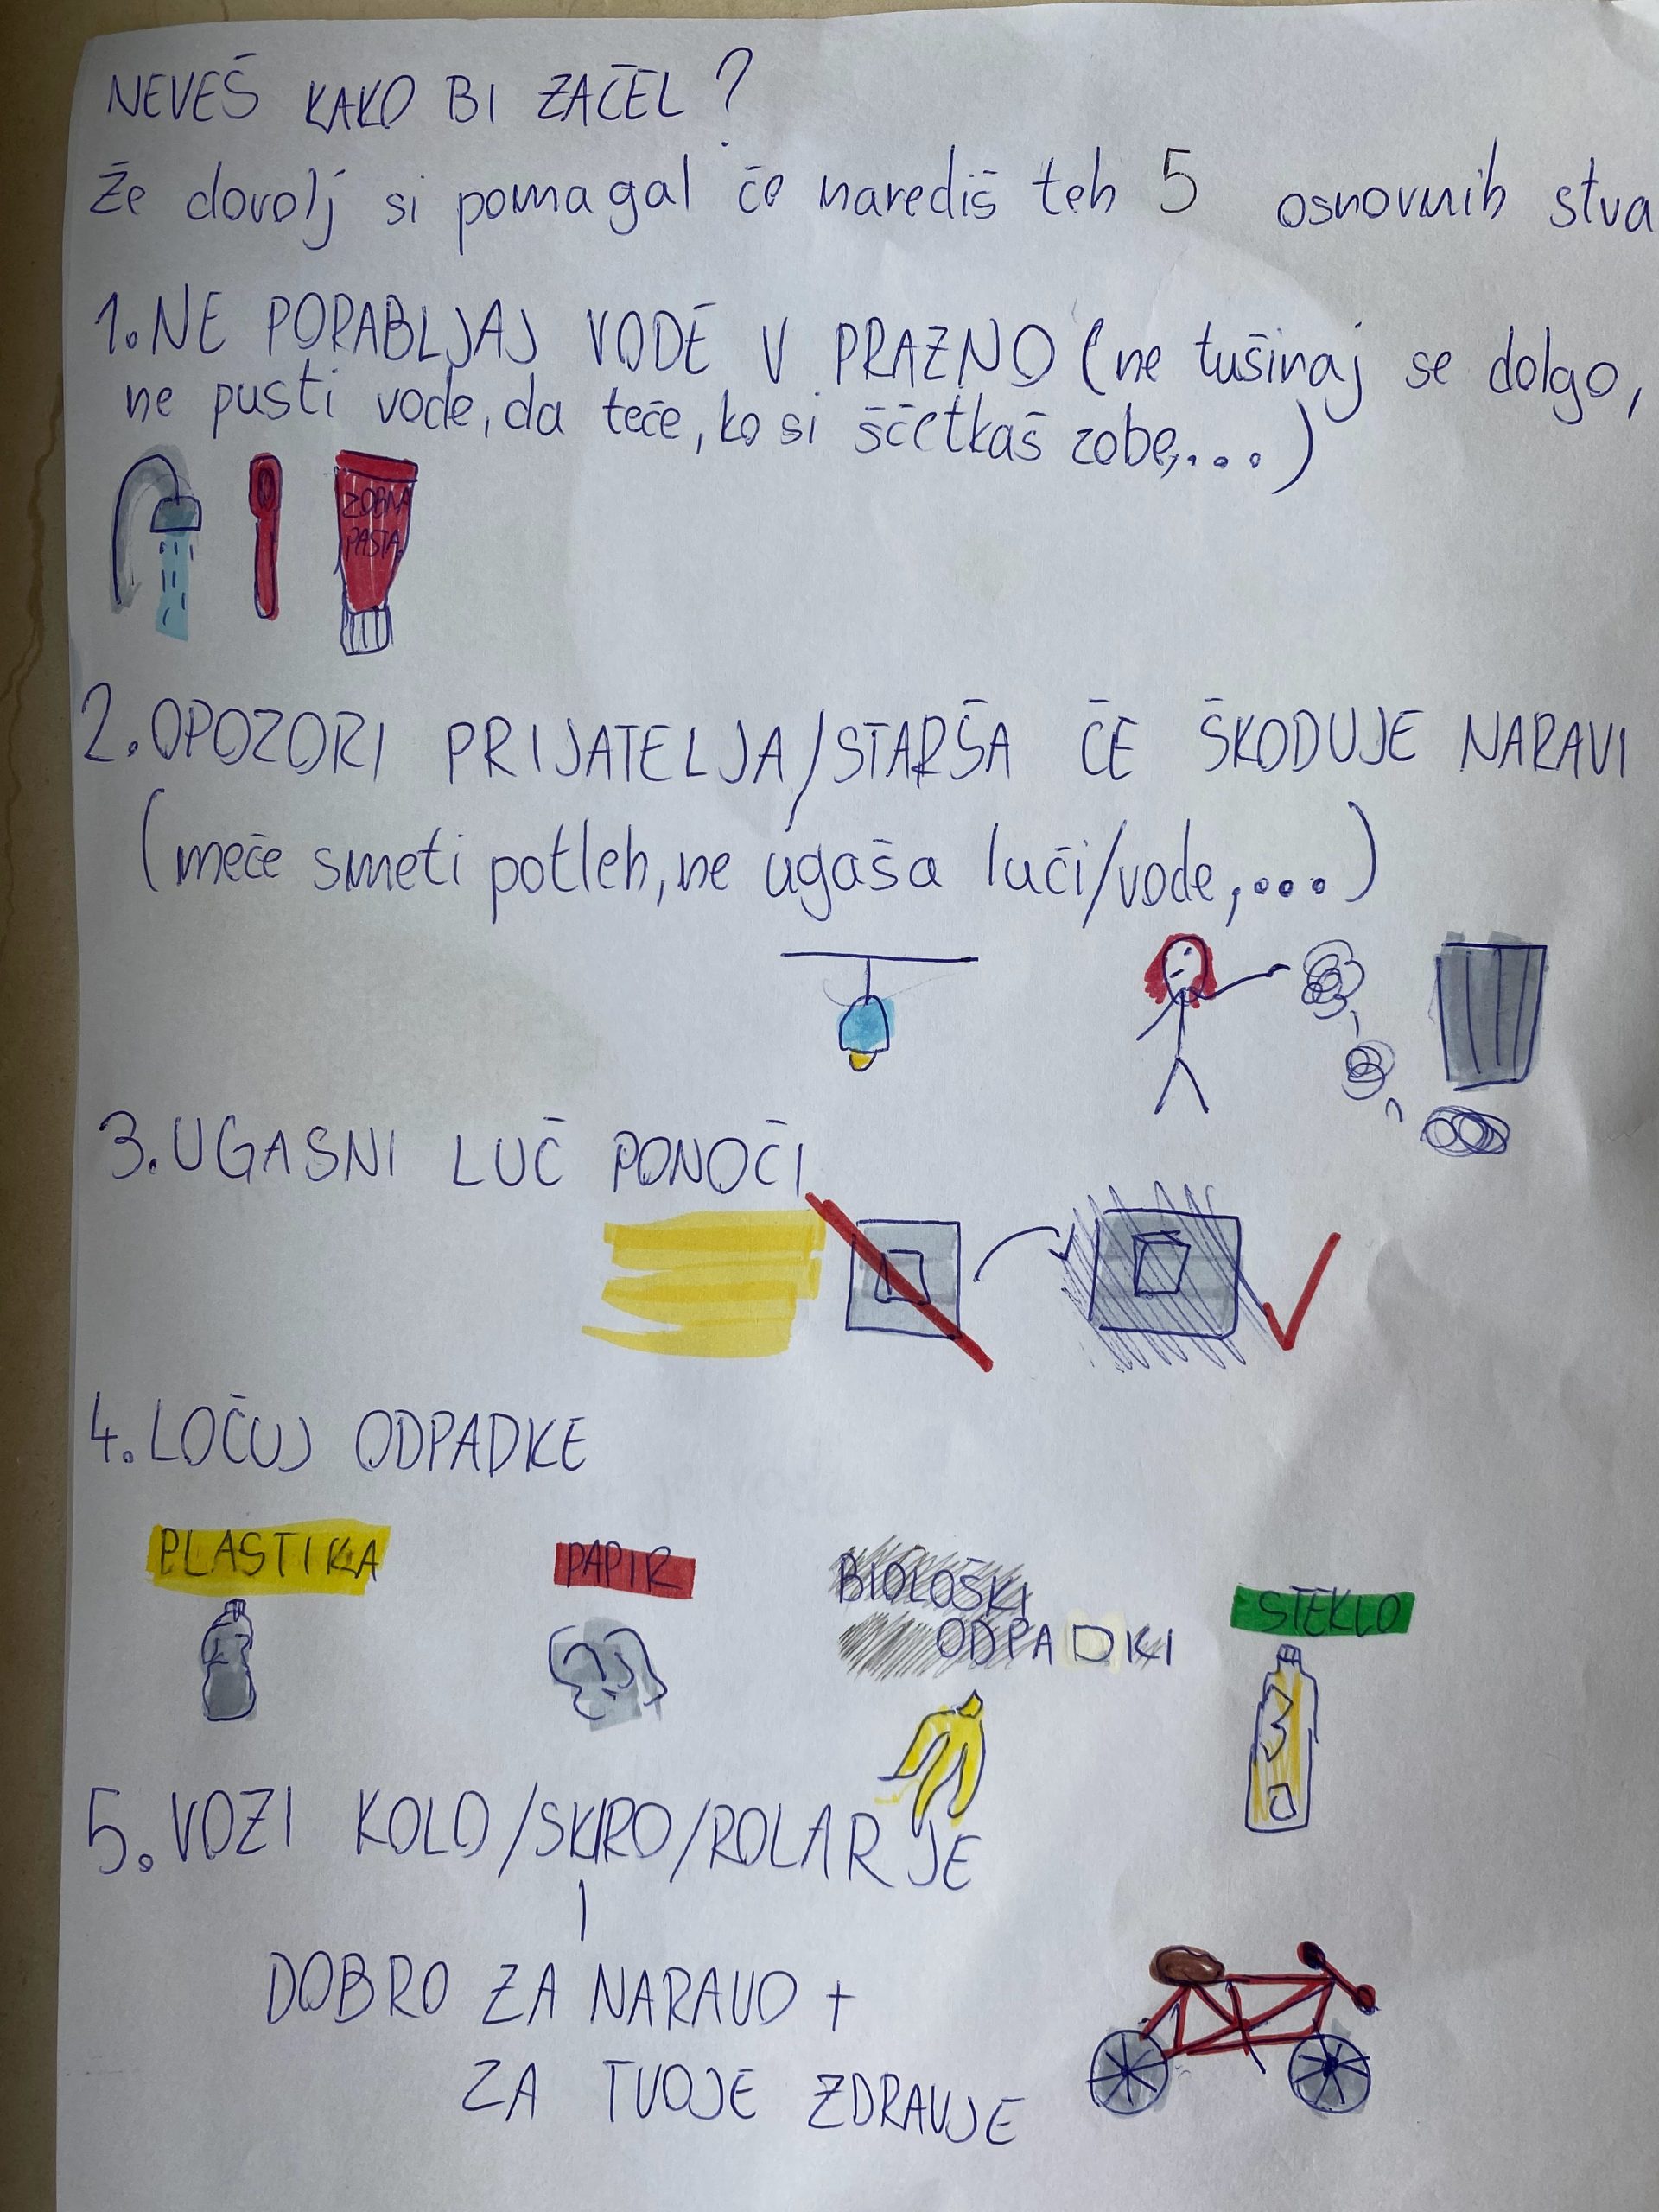 NEVEŠ KAKO BI ZAČEL?
Že dovolj si pomagal če narediš teh 5 osnovnih stva
1. NE PORABLJAJ VODE V PRAZNO (ne tuširaj se dolgo,
ne pusti vode, da teče, ko si ščetkaš zobe,...)
ZOBNA
PASTA
2. OPOZORI PRIJATELJA/STARŠA ČE ŠKODUJE NARAVI
(meče smeti potleh, ne ugaša luči/vode,...)
3. UGASNI LUČ PONOČI
4. LOČUJ ODPADKE
PLASTIKA PAPIR BIOLOŠKI STEKLO
ODPADKI
5. VOZI KOLO/SKIRO/ROLARJE
DOBRO ZA NARAVO +
ZA TVOJE ZDRAVJE